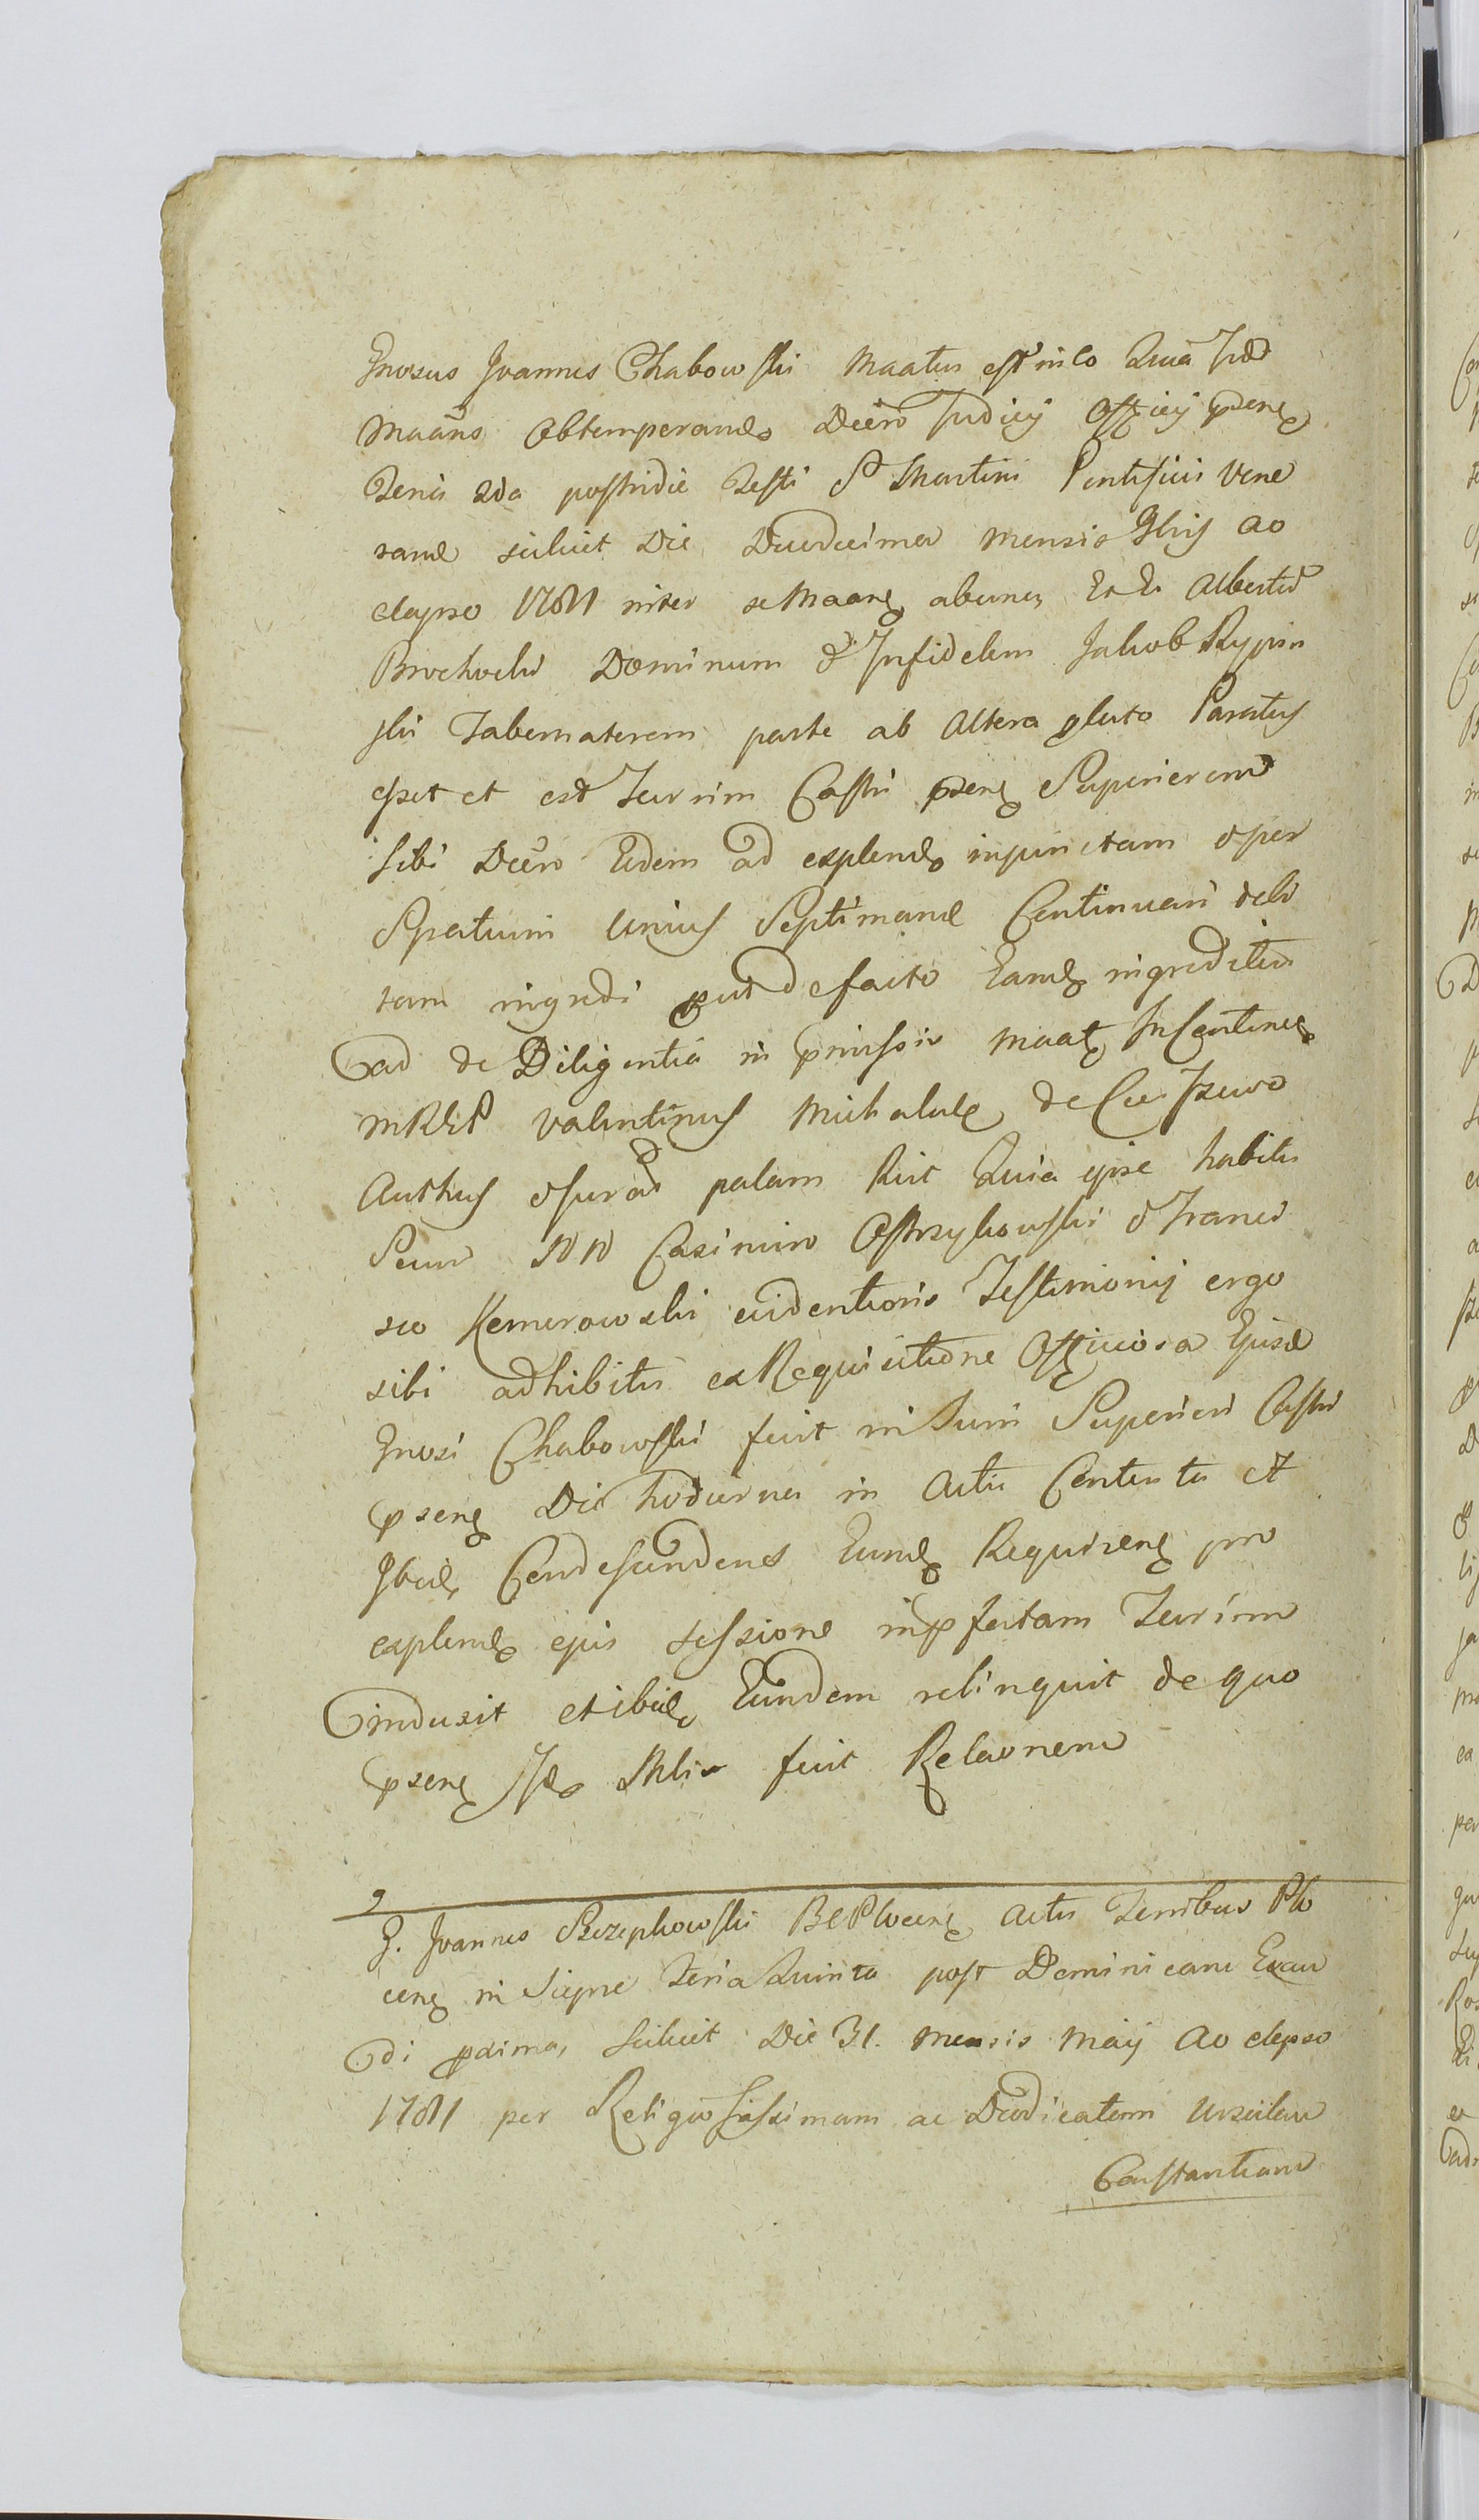 Gnosus Joannes Chabowski Maatus est in eo Quia Ipse
Maans Obtemperando Decro Judicij Officij psens
Feria 2da postridie Festi S Martini Pontificis Vene
rand scilicet Die Duodecima mensis 9bris Ao
elapso 1781 inter se Maane ab una Et Albertu
Brochocki Dominum & Infidelem Jakob Rypin
ski Tabernatorem parte ab Altera plato Paratus
esset et est Turrim Castri psens Superiorem
sibi Decro Eodem ad explend injunctam & per
Spatium unius Septimane Continuari debi
tam ingredi put de facto Eand ingreditur
ad de Diligentia in pmissis Maat In Contine
MREP Valentinus Michalak de
Authus & jurat palam Rcit Quia ipse habitis
Secum NN Casimiro Ostrzykowski & Franci
sco Komorowski evidentioris Testimonij ergo
sibi adhibitis ex Requisitione Officiosa Ejusd
Gnosi Chabowski fuit in Turri Superiori Castri
psens Die hodierna in Actu Contenta et
Ibid Condescendens Eund Requirens pro
explend ejus sessione in pfatam Turrim
induxit et ibid Eundem relinquit de quo
psens Suam fecit Relaonem
9
G. Joannes Rzezykowski BCPlocens Actis Terribus Plo
cens in Sierpc Feria Quinta post Dominicam Exau
di pxima, scilicet Die 31. mensis Maij Ao elapso
1781 per Religiosissimam ac Dedicatam Ursulam
Constantiam